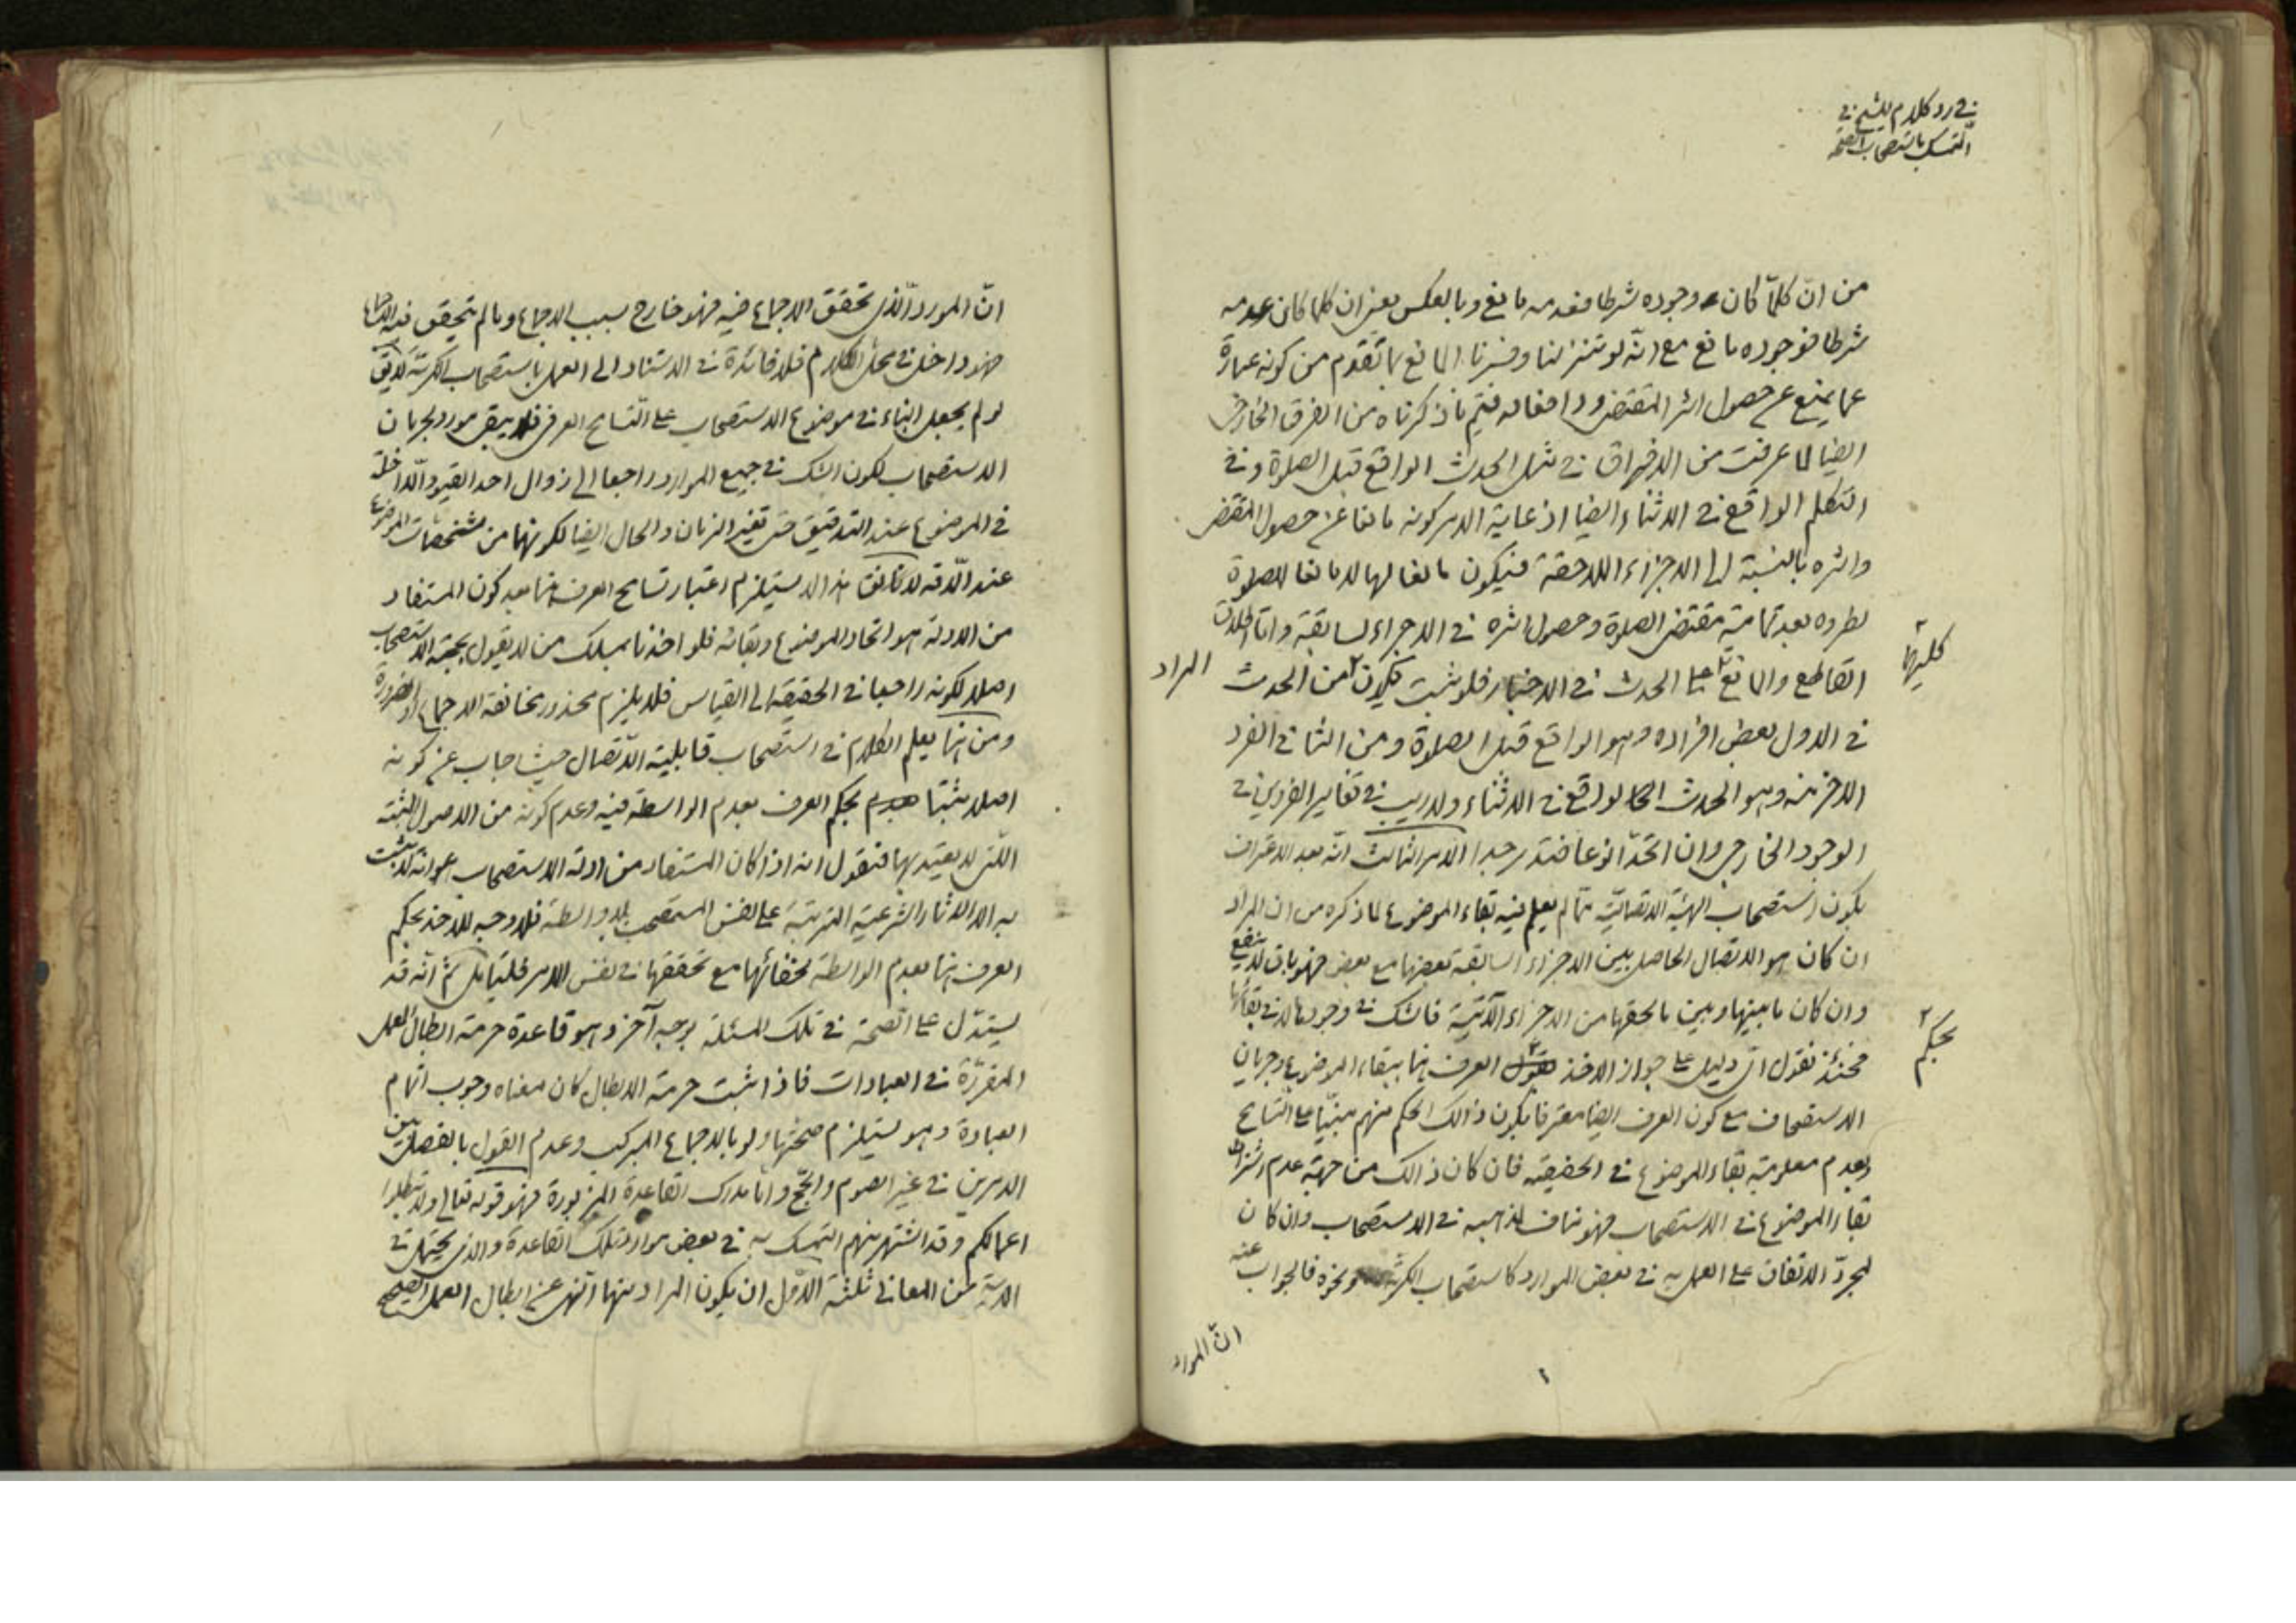 في رد كلام الشيخ في
التمسك باستصحاب الصحة
من انّ كلّما كان وجوده شرطا فعدمه مانع وبالعكس يعني ان كلما كان عدمه
شرطا فوجوده مانع مع انّه لو تنزلنا وفسرنا المانع بما تقدم من كونه عبارة
عما يمنع عن حصول اثر المقتضي ورافعا له فيتم ما ذكرناه من الفرق الخارجي
ايضا لما عرفت من الافتراق في مثل الحدث الواقع قبل الصلوة وفي
التكلم الواقع في الاثناء ايضا اذ غاية الامر كونه مانعا عن حصول المقتضي
واثره بالنسبة الى الاجزاء اللاحقة فيكون مانعا لها لا مانعا للصلوة
لطروه بعد تمامية مقتضي الصلوة وحصول اثره في الاجزاء السابقة واما اطلاق
القاطع والمانع كليهما على الحدث في الاخبار فلو ثبت فيكون المراد من الحدث
في الاول بعض افراده وهو الواقع قبل الصلوة ومن الثاني الفرد
الاخر منه وهو الحدث الواقع في الاثناء ولا ريب في تغاير الفردين في
الوجود الخارجي وان اتحدا نوعا فتدبر جيدا الامر الثالث انّه بعد الاعتراف
بكون استصحاب الهيئة الاتصاليّة مما لم يعلم فيه بقاء الموضوع لما ذكره من ان المراد
ان كان هو الاتصال الحاصل بين الاجزاء السابقة بعضها مع بعض فهو باق لا ينفع
وان كان ما بينها وبين ما لحقها من الاجزاء الآتية فالشك في وجودها لا في بقائها
فحينئذ نقول ايّ دليل على جواز الاخذ بحكم العرف هنا ببقاء الموضوع وجريان
الاستصحاب مع كون العرف ايضا معترفا بكون ذالك الحكم منهم مبنيّا على التسامح
وبعدم معلومية بقاء الموضوع في الحقيقة فان كان ذالك من جهة عدم اشتراط
بقاء الموضوع في الاستصحاب فهو مناف لمذهبه في الاستصحاب وان كان
لمجرّد الاتفاق على العمل به في بعض الموارد كاستصحاب الكرية ونحوه فالجواب عنه
انّ المورد
انّ المورد الّذي تحقق الاجماع فيه فهو خارج بسبب الاجماع وما لم يتحقق فيه الاجماع
فهو داخل في محل الكلام فلا فائدة في الاستناد الى العمل باستصحاب الكرية لا يق
لو لم يجعل البناء في موضوع الاستصحاب على التسامح العرفي فلا يبقى مورد لجريان
الاستصحاب لكون الشك في جميع الموارد راجعا الى زوال احد القيود الّداخلة
في الموضوع عند التدقيق حتى تغير الزمان والحال ايضا لكونهما من مشخصات الموضوع
عند الدّقة لانا نقول هذا لا يستلزم اعتبار تسامح العرف هنا بعد كون المستفاد
من الادلة هو اتحاد الموضوع وبقائه فلو اخذنا بمسلك من لا يقول بحجية الاستصحاب
اصلا لكونه راجعا في الحقيقة الى القياس فلا يلزم محذور مخالفة الاجماع او الضرورة
ومن هنا يعلم الكلام في استصحاب قابلية الاتصال حيث اجاب عن كونه
اصلا مثبتا بحكم العرف بعدم الواسطة فيه وعدم كونه من الاصول المثبتة
اللتي لا يعتد بها فنقول انه اذا كان المستفاد من ادلة الاستصحاب هو انه لا يثبت
به الا الاثار الشرعية المترتبة على نفس المستصحب بلا واسطة فلا وجه للاخذ بحكم
العرف هنا بعدم الواسطة لخفائها مع تحققها في نفس الامر فليتامل ثم انّه قد
يستدل على الصحة في تلك المسئلة بوجه آخر وهو قاعدة حرمة ابطال العمل
المقرّرة في العبادات فاذا ثبت حرمة الابطال كان معناه وجوب اتمام
العبادة وهو يستلزم صحتها ولو بالاجماع المركب وعدم القول بالفصل بين
الامرين في غير الصوم والحج وامّا مدرك القاعدة المزبورة فهو قوله تعالى ولا تبطلوا
اعمالكم وقد اشتهر بينهم التمسك به في بعض موارد تلك القاعدة والذي يحتمل في
الاية من المعاني ثلثة الاوّل ان يكون المراد منها النهي عن ابطال العمل الصحيح